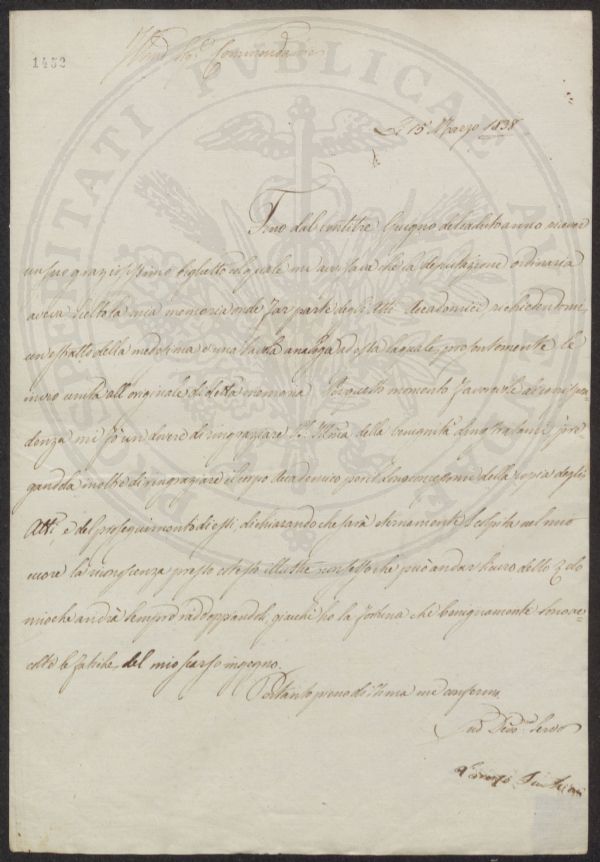 1452
Sig.r Commendatore
Li 15 Marzo 1838
Fino dal ventitre Giugno decaduto anno ricevei
un suo graziosissimo biglietto col quale mi avvisava che la deputazione ordinaria
aveva scelto la mia memoria onde far parte degli Atti Accademici richiedendomi
un estratto della medesima e una tavola analoga ad essa la quale presentemente le
invio unita all'originale di detta memoria. In questo momento favorevole di corrispon-
denza mi fò un dovere di ringraziare della benignità dimostratami, pre-
gandola inoltre di ringraziare il corpo Accademico per il dono della copia degli
Atti, e del proseguimento di essi, dichiarando che sarà eternamente scolpita nel mio
cuore la riconoscenza presso cotesto illustre consesso che può andar sicuro dello Zelo
mio che andrà sempre raddoppiandosi, giacchè ho la fortuna che benignamente sono ac-
colte le fatiche del mio scarso ingegno.
Pertanto pieno di stima mi confermo
Suo Devo.mo Servo
Lorenzo
PERITATI PUBLICAE